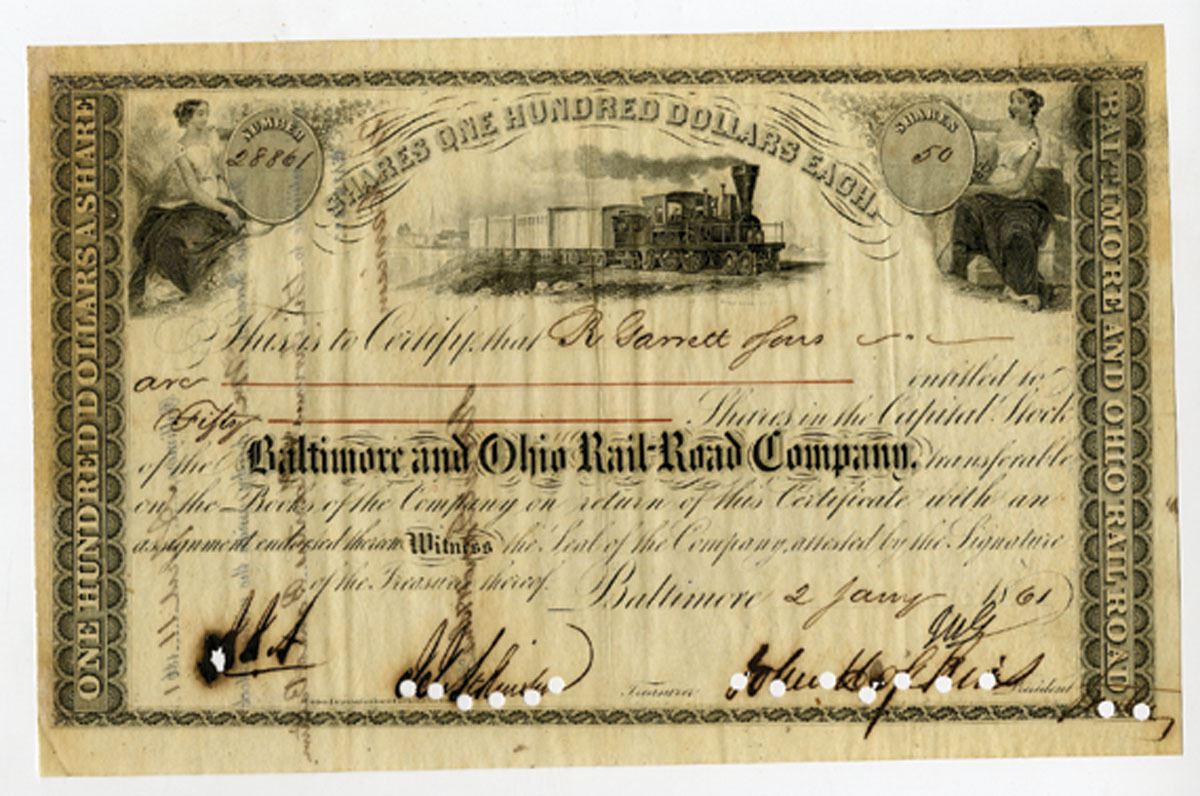 ONE HUNDRED DOLLARS A SHARE
NUMBER
28861
SHARES ONE HUNDRED DOLLARS EACH.
SHARES
50
BALTIMORE AND OHIO RAIL ROAD
This is to Certify, that R Garrett & Sons
are entitled to
Fifty Shares in the Capital Stock
of the Baltimore and Ohio Rail-Road Company. transferable
on the Books of the Company on return of this Certificate with an
assignment endorsed thereon Witness the Seal of the Company, attested by the Signature
of the Treasurer thereof.
Baltimore 2 Jany 1861
Treasurer
President